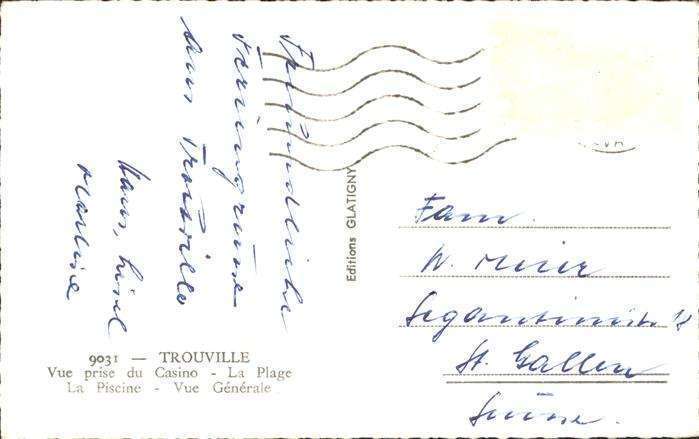 Freundliche
Feriengrüsse
aus Trouville
Hans, Lisel
Marlise
Editions GLATIGNY
9031 — TROUVILLE
Vue prise du Casino - La Plage
La Piscine - Vue Générale
Fam.
W. Meier
St. Gallen
Suisse.